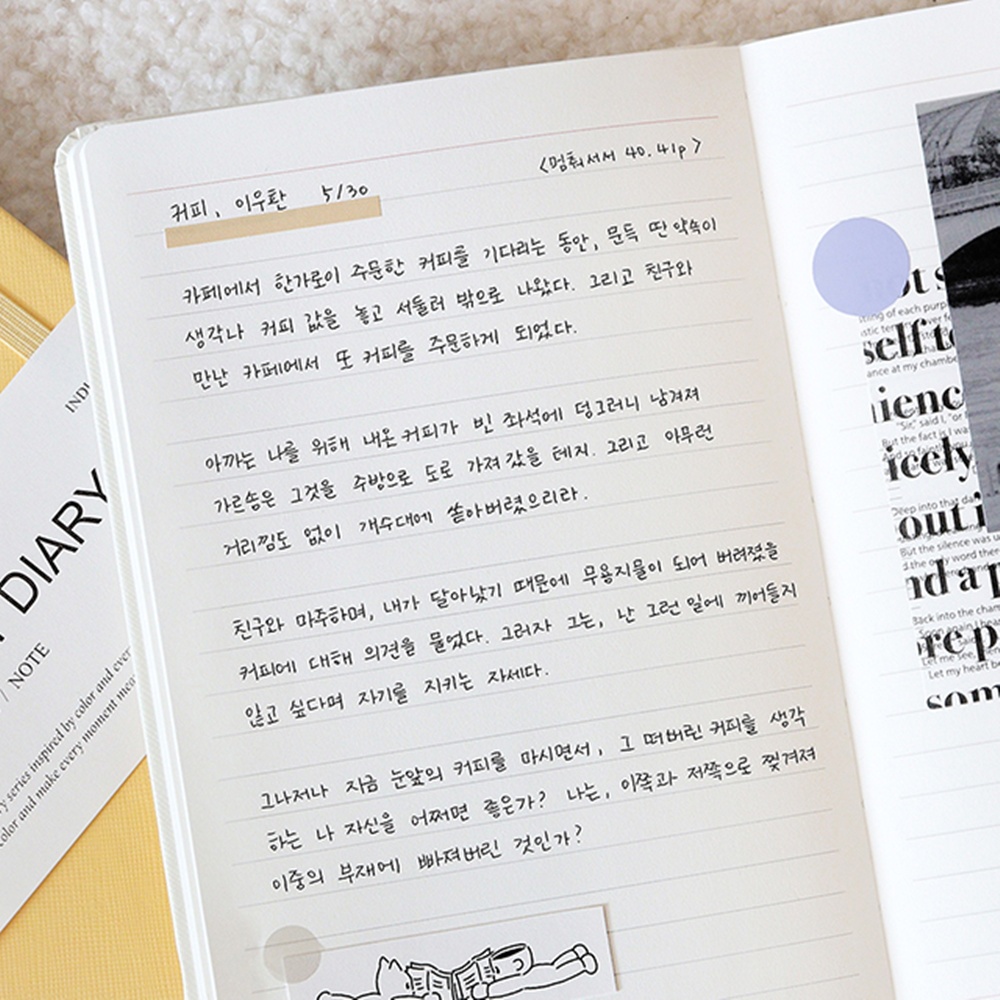 커피, 이우환 5/30
<멈춰서서 40.41p>
카페에서 한가로이 주문한 커피를 기다리는 동안, 문득 딴 약속이
생각나 커피 값을 놓고 서둘러 밖으로 나왔다. 그리고 친구와
만난 카페에서 또 커피를 주문하게 되었다.
아까는 나를 위해 내온 커피가 빈 좌석에 덩그러니 남겨져
가르송은 그것을 주방으로 도로 가져갔을 테지. 그리고 아무런
거리낌도 없이 개수대에 쏟아버렸으리라.
친구와 마주하며, 내가 달아났기 때문에 무용지물이 되어 버려졌을
커피에 대해 의견을 물었다. 그러자 그는, 난 그런 일에 끼어들지
않고 싶다며 자기를 지키는 자세다.
그나저나 지금 눈앞의 커피를 마시면서, 그 떠버린 커피를 생각
하는 나 자신을 어쩌면 좋은가? 나는, 이쪽과 저쪽으로 찢겨져
이중의 부재에 빠져버린 것인가?
DIARY
/ NOTE
y series inspired by color and ever
color and make every moment mea
self to
icely
out i
nd a p
"Sir," said I, "or
But the fact is I wa
Deep into that da
But the silence was u
Back into the cham
Let me see,
Let my heart be